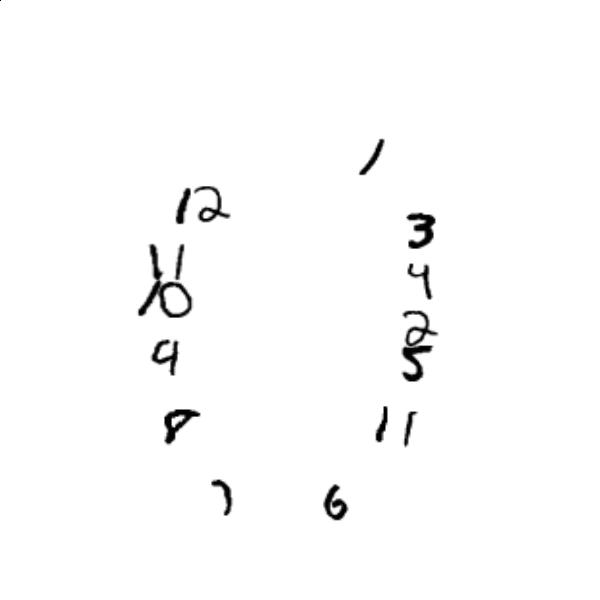 1
12
3
11
4
10
2
9
5
8
11
7
6